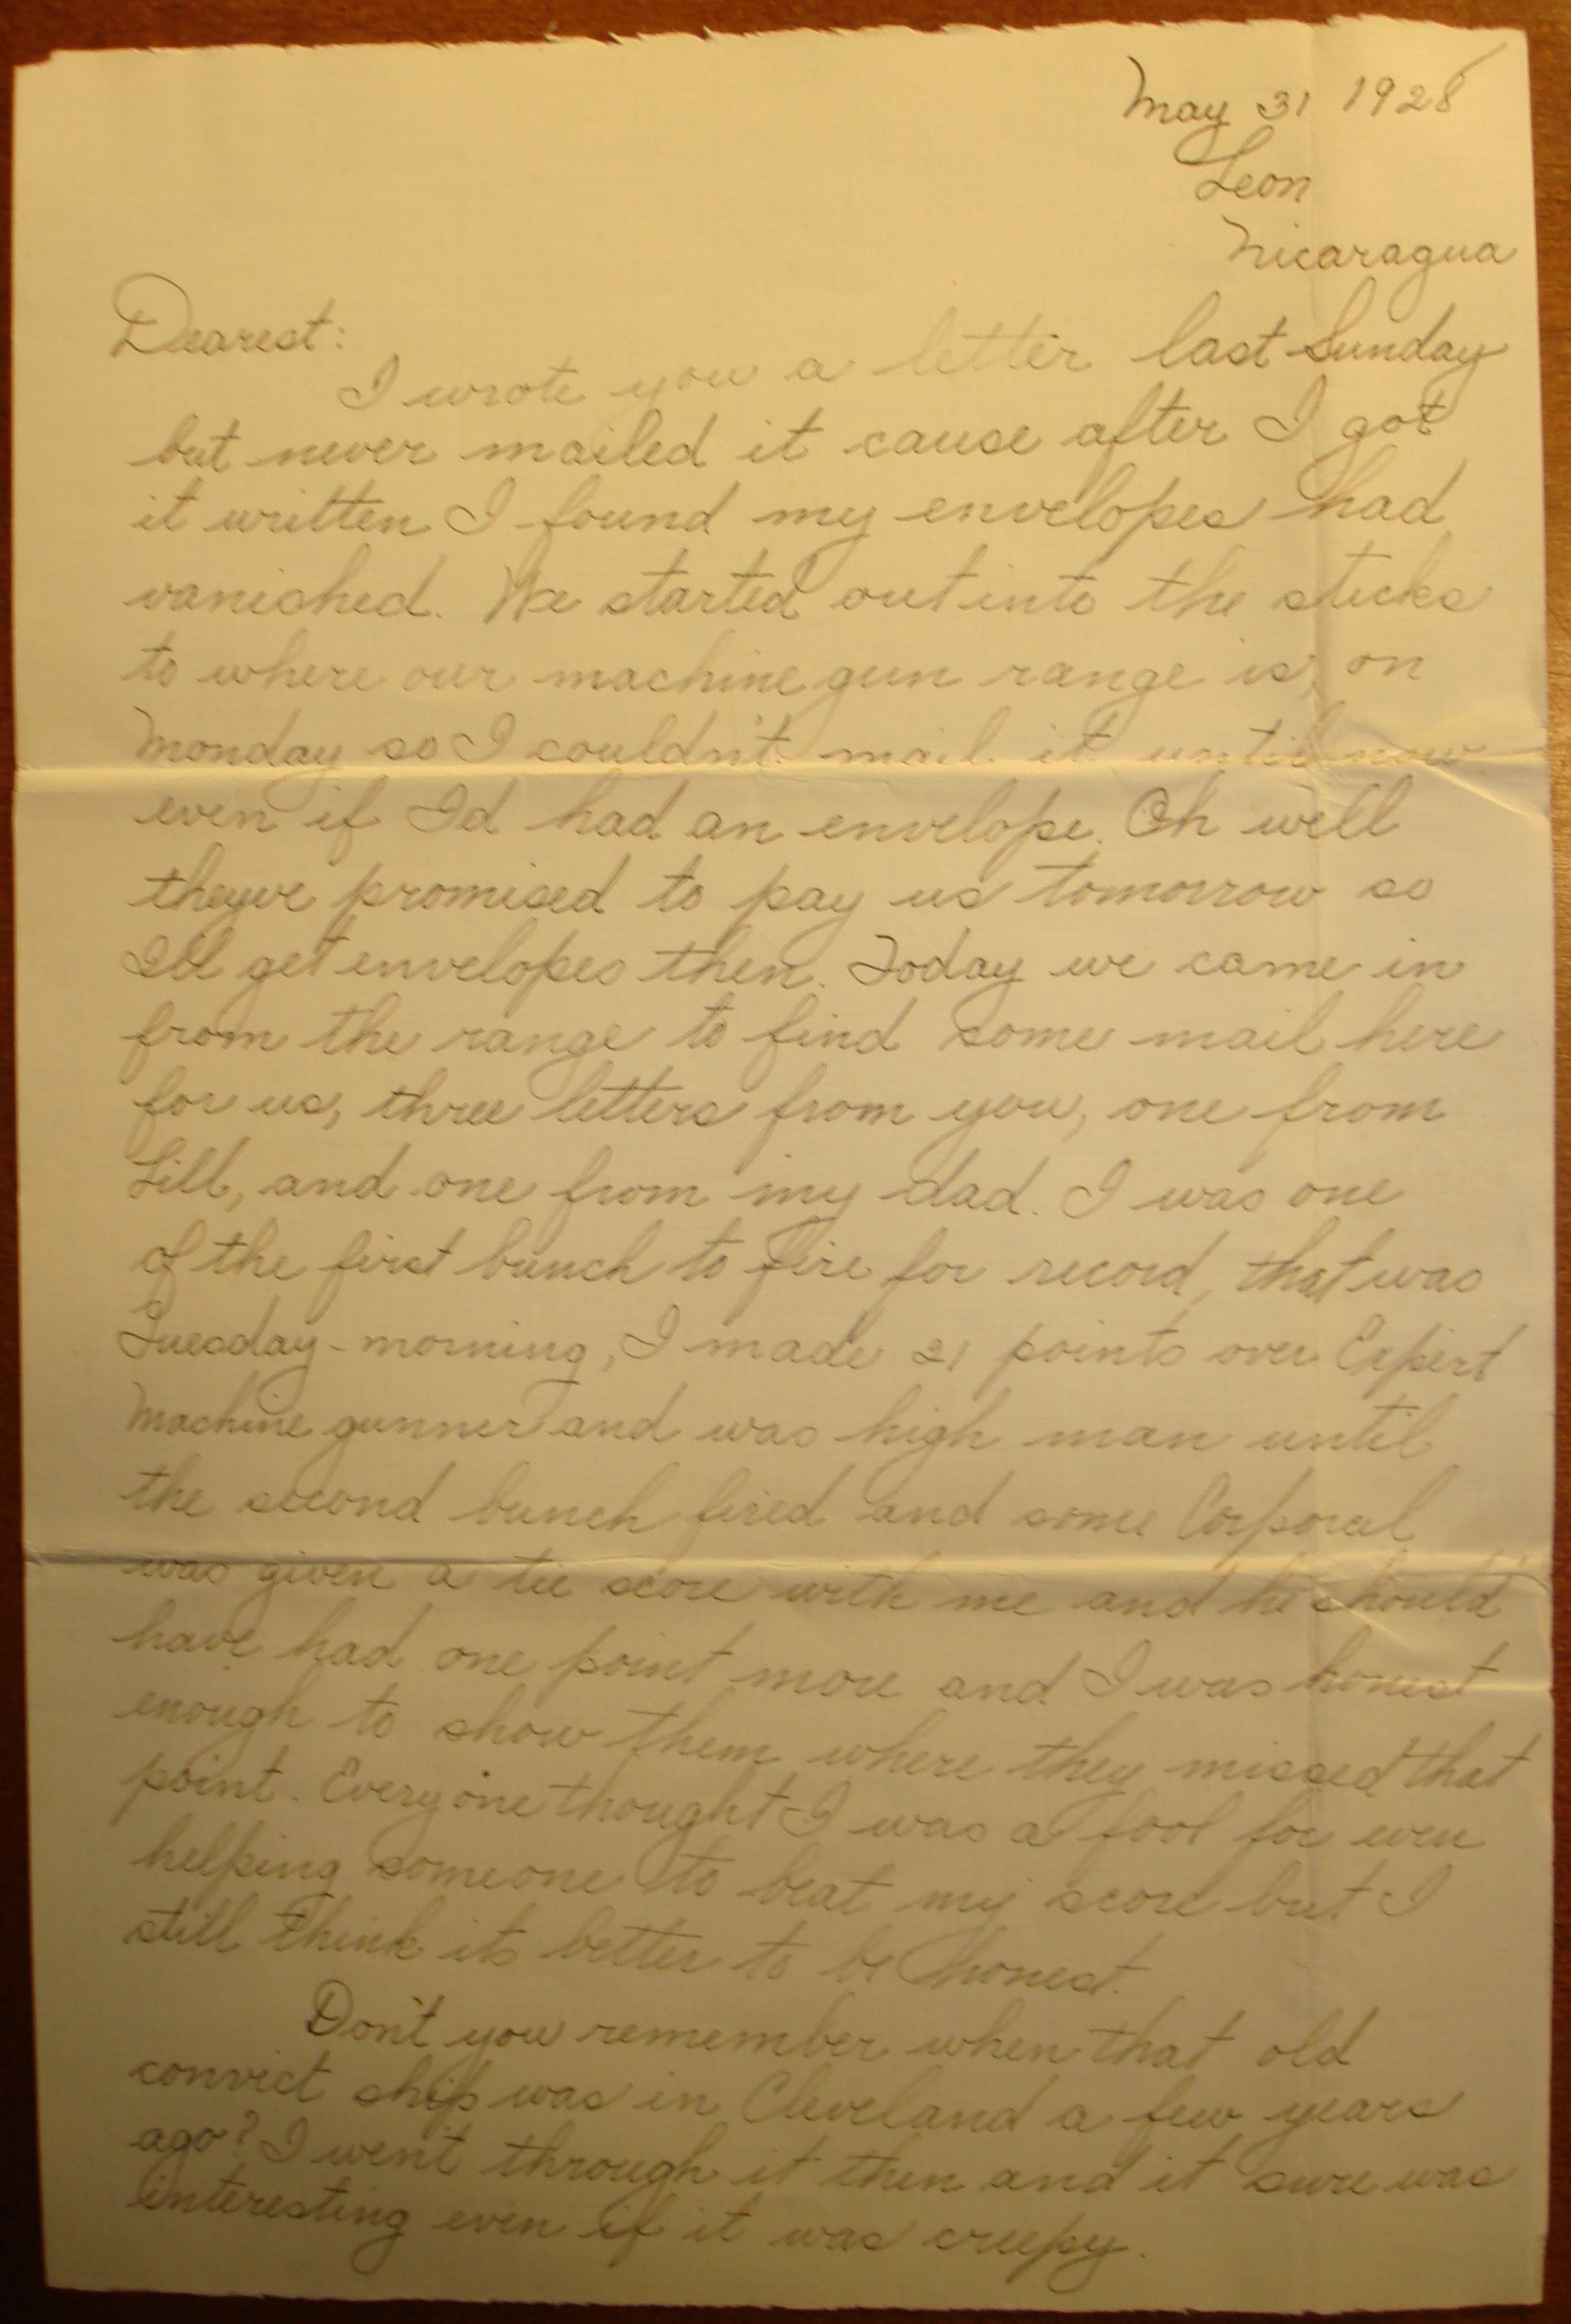 May 31 1928
Leon
Nicaragua
Dearest:
I wrote you a letter last Sunday
but never mailed it cause after I got
it written I found my envelopes had
vanished. We started out into the sticks
to where our machine gun range is, on
Monday so I couldn't mail it until now
even if I'd had an envelope. Oh well
theyve promised to pay us tomorrow so
I'll get envelopes then. Today we came in
from the range to find some mail here
for us, three letters from you, one from
Lill, and one from my dad. I was one
of the first bunch to fire for record, that was
Tuesday-morning, I made 21 points over Expert
Machine gunner and was high man until
the second bunch fired and some Corporal
was given a tie score with me and he should
have had one point more and I was honest
enough to show them where they missed that
point. Everyone thought I was a fool for even
helping someone to beat my score but I
still think its better to be honest.
Don't you remember when that old
convict ship was in Cleveland a few years
ago? I went through it then and it sure was
interesting even if it was creepy.